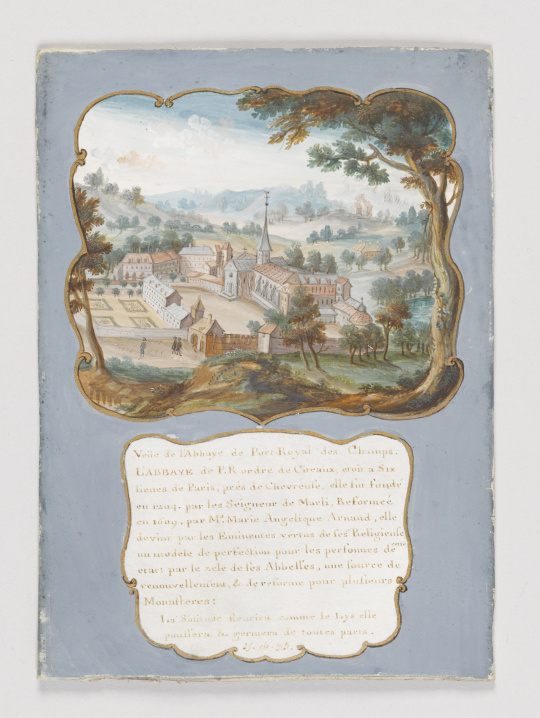 Veüe de l'Abbaye de Port Royal des Champs.
L'ABBAYE de P.R ordre de Citeaux, etoit a Six
lieues de Paris, pres de Chevreuse, elle fut fondé
en 1204. par les Seigneur de Marli, Reformée
en 1609. par Me. Marie Angelique Arnaud, elle
devint par les Eminentes vertus de ses Religieuse
un modele de perfection pour les personnes de
etat: par le zele de ses Abbesses, une source de
renouvellement, & de reforme pour plusieurs
Monasteres:
La Solitude fleurira comme le Lys elle
poussera & germera de toutes parts.